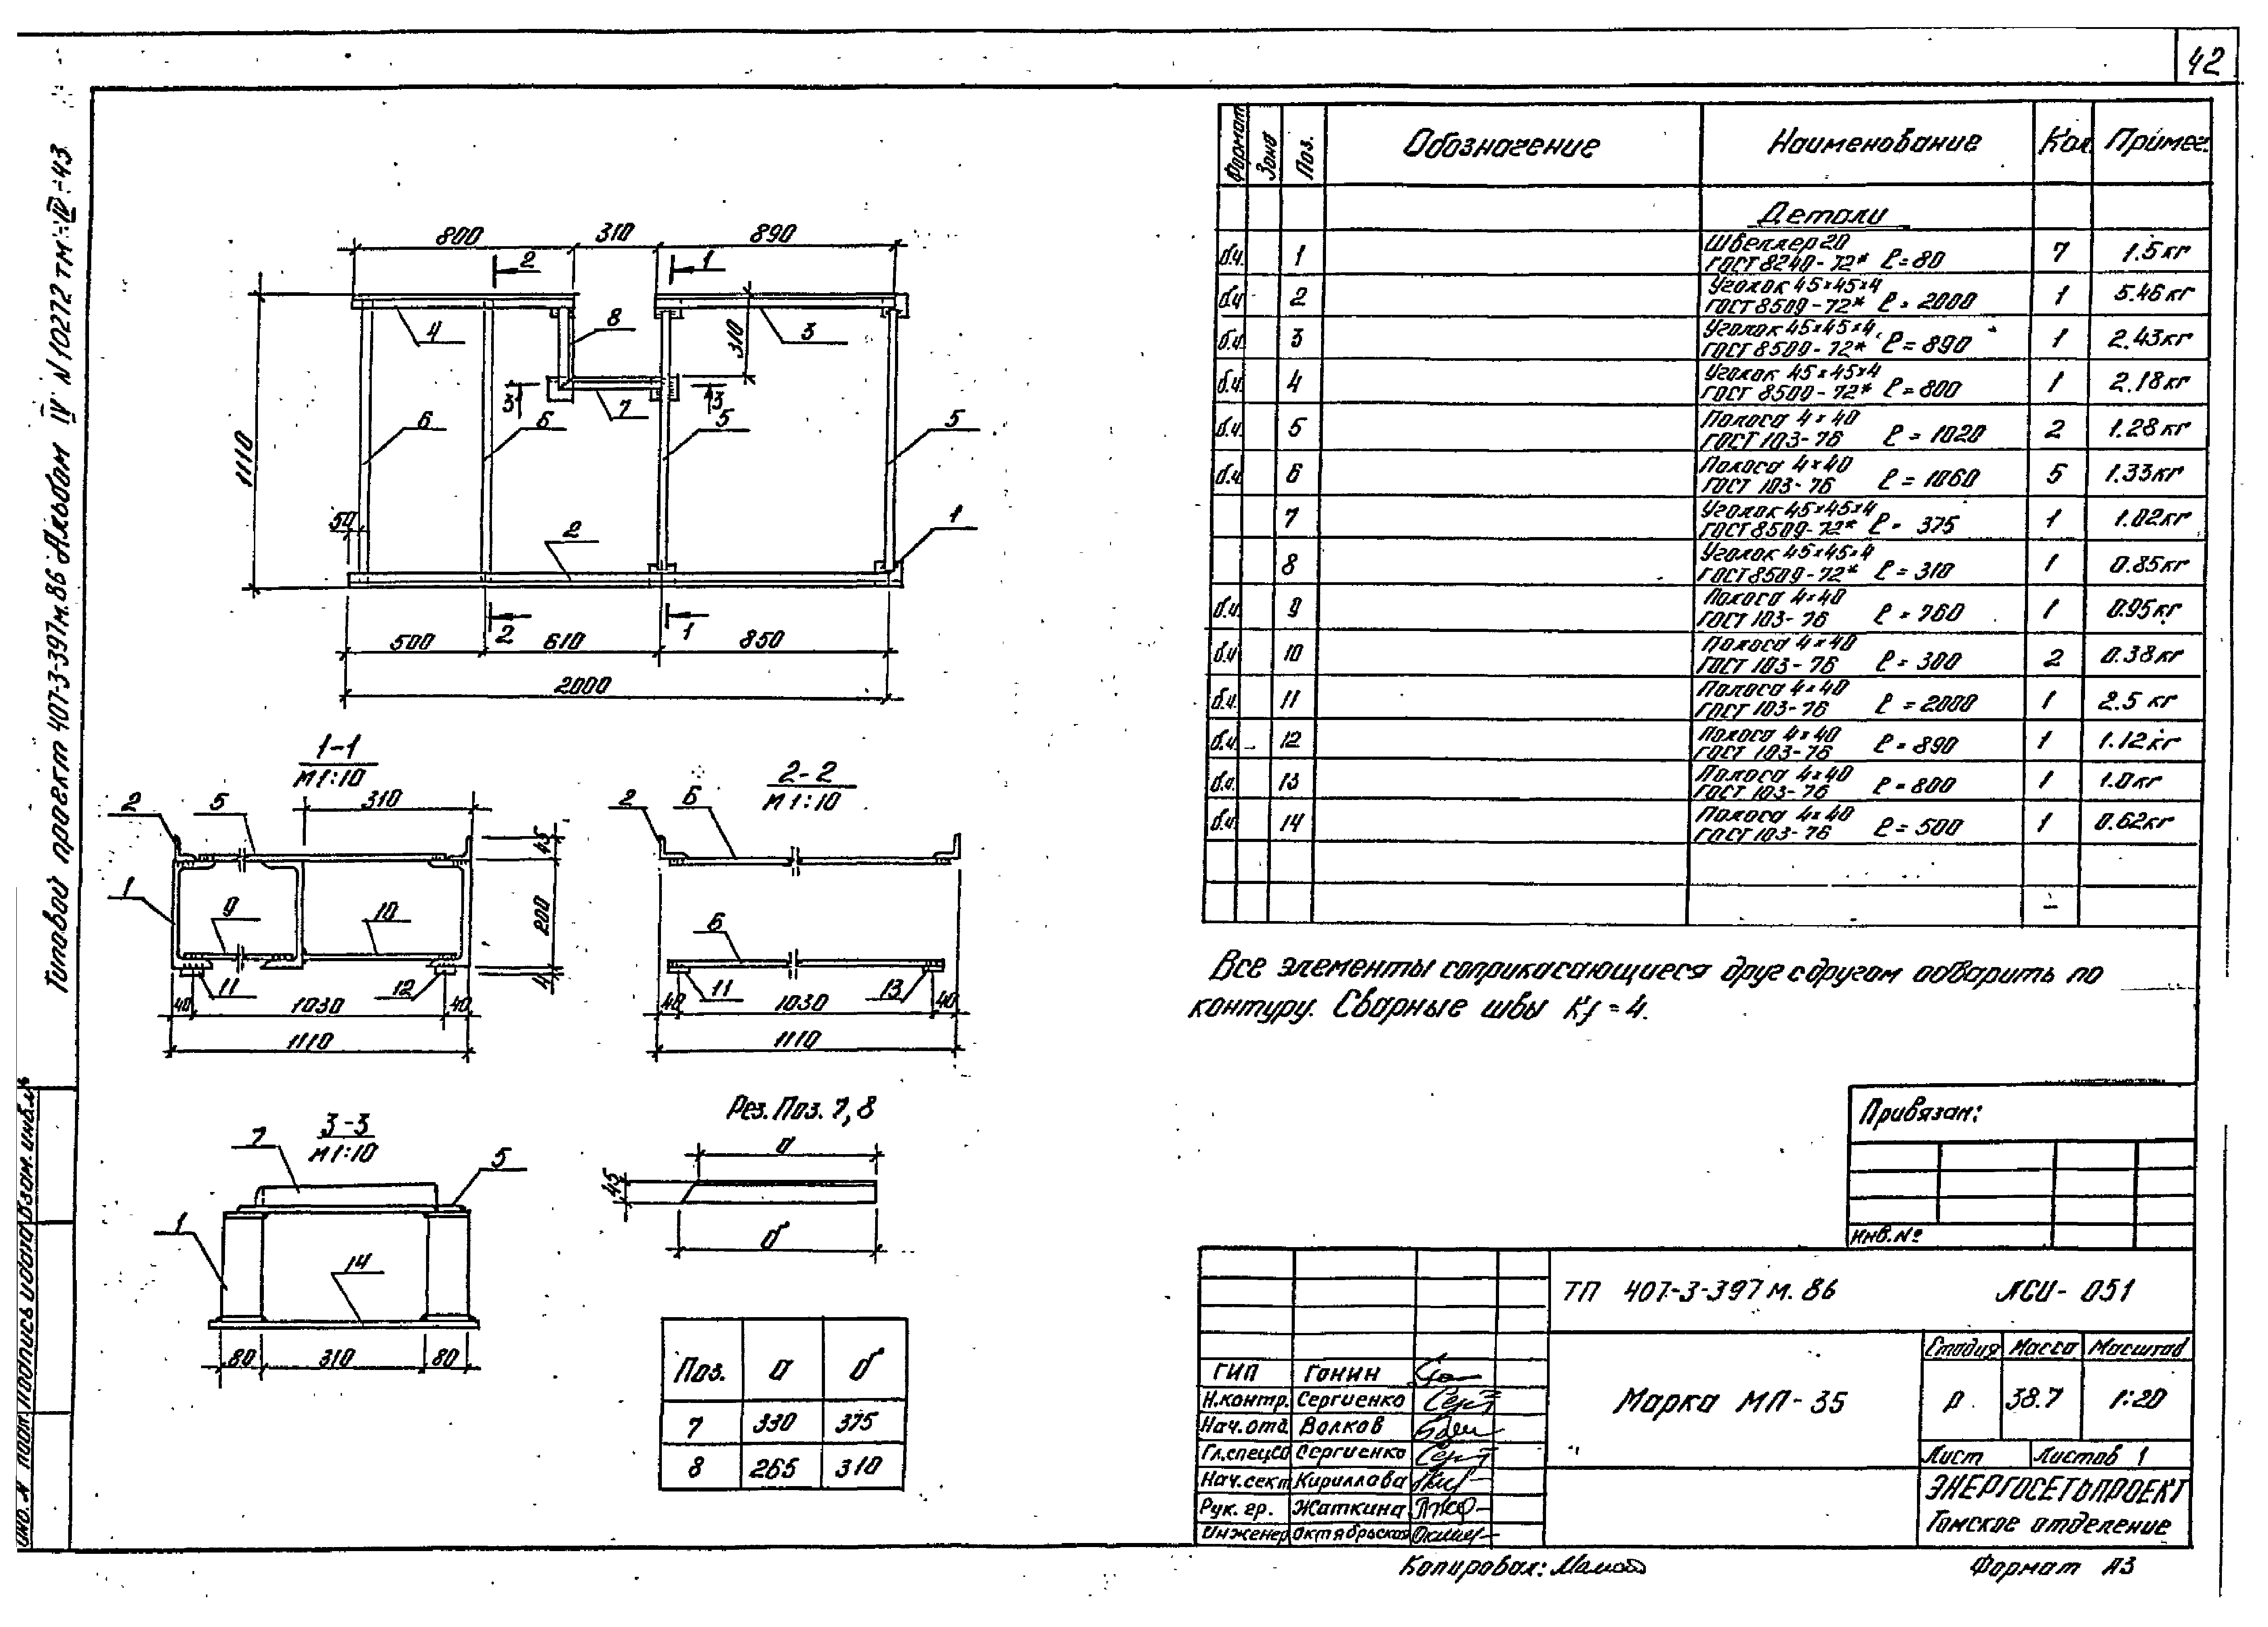 42
Типовой проект 407-3-397м.86 Альбом IV N 10272 тм-IV-43
800 310 890
2 1
4 8 3
310
3 3
7
6 6 5 5
1110
50
2 1
2 1
500 610 850
2000
1-1
М 1:10
2 5 310
45
1
9 10
200
4
11 12
40 1030 40
1110
2-2
М 1:10
2 6
6
11 13
40 1030 40
1110
3-3
М 1:10
7 5
1
14
80 310 80
Рез. Поз. 7, 8
а
45
б
Поз. а б
7 330 375
8 265 310
Формат Зона Поз. Обозначение Наименование Кол. Примеч.
Детали
б.ч. 1 Швеллер 20 ГОСТ 8240-72* ℓ=80 7 1.5кг
б.ч. 2 Уголок 45×45×4 ГОСТ 8509-72* ℓ=2000 1 5.46кг
б.ч. 3 Уголок 45×45×4 ГОСТ 8509-72* ℓ=890 1 2.43кг
б.ч. 4 Уголок 45×45×4 ГОСТ 8509-72* ℓ=800 1 2.18кг
б.ч. 5 Полоса 4×40 ГОСТ 103-76 ℓ=1020 2 1.28кг
б.ч. 6 Полоса 4×40 ГОСТ 103-76 ℓ=1060 5 1.33кг
7 Уголок 45×45×4 ГОСТ 8509-72* ℓ=375 1 1.02кг
8 Уголок 45×45×4 ГОСТ 8509-72* ℓ=310 1 0.85кг
б.ч. 9 Полоса 4×40 ГОСТ 103-76 ℓ=760 1 0.95кг
б.ч. 10 Полоса 4×40 ГОСТ 103-76 ℓ=300 2 0.38кг
б.ч. 11 Полоса 4×40 ГОСТ 103-76 ℓ=2000 1 2.5кг
б.ч. 12 Полоса 4×40 ГОСТ 103-76 ℓ=890 1 1.12кг
б.ч. 13 Полоса 4×40 ГОСТ 103-76 ℓ=800 1 1.0кг
б.ч. 14 Полоса 4×40 ГОСТ 103-76 ℓ=500 1 0.62кг
Все элементы соприкасающиеся друг с другом обварить по
контуру. Сварные швы Kf=4.
Привязан:
Инв.№
ТП 407-3-397м.86 КСИ-051
ГИП Гонин
Н.контр. Сергиенко
Нач.отд. Волков
Гл.спец.СО Сергиенко
Нач.сект. Кириллова
Рук. гр. Жаткина
Инженер Октябрьская
Марка МП-35
Стадия Масса Масштаб
Р 38.7 1:20
Лист Листов 1
ЭНЕРГОСЕТЬПРОЕКТ
Томское отделение
Копировал:
Формат А3
Инв. N подл. Подпись и дата Взам. инв. N